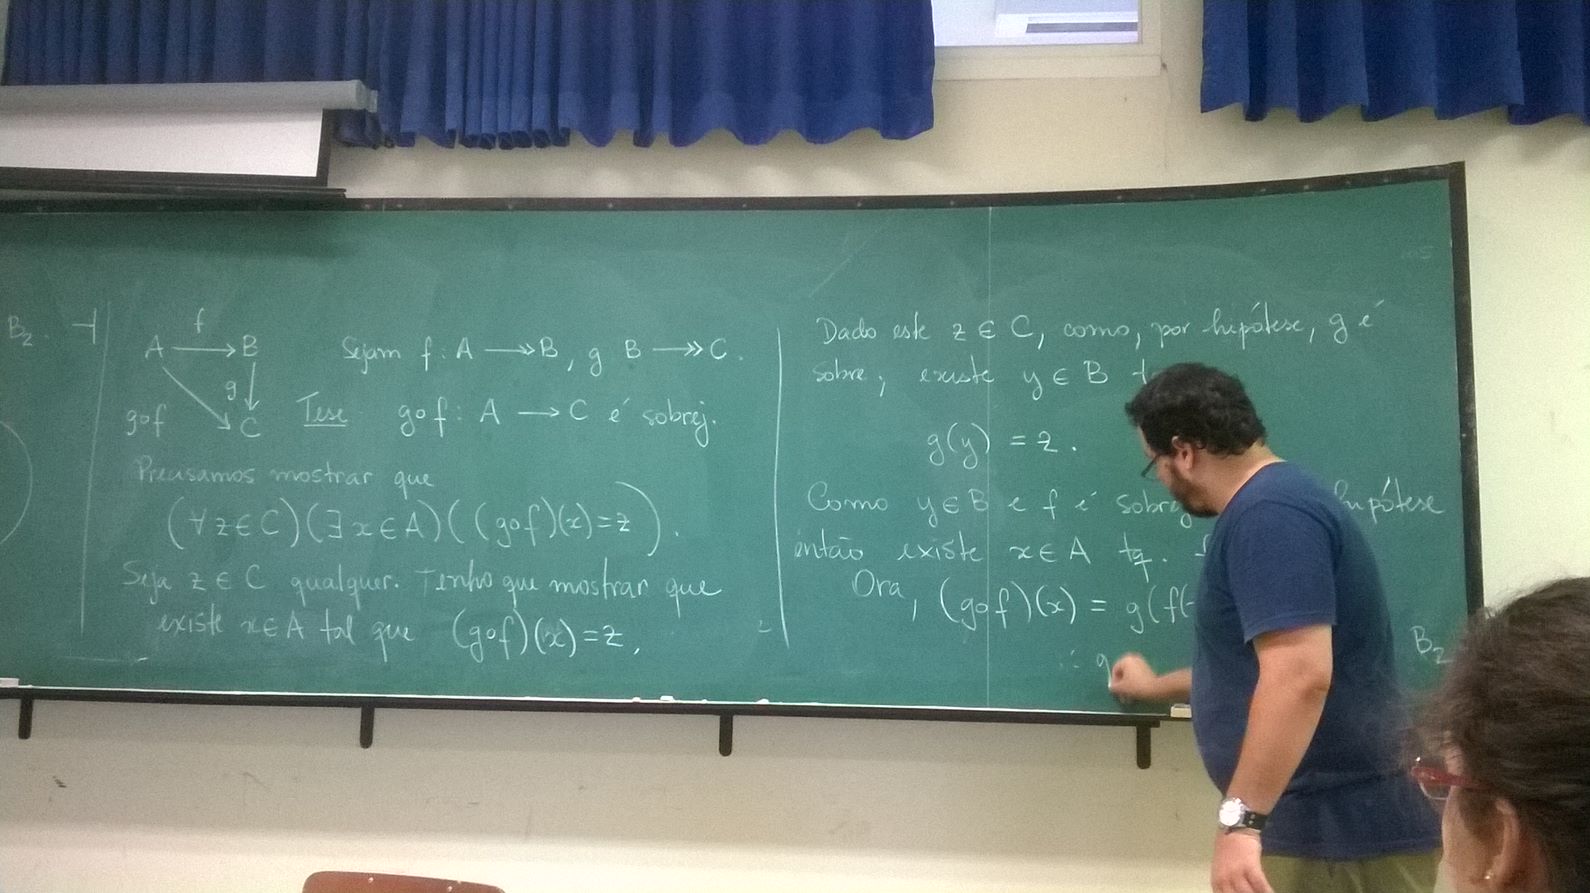 B₂. ⊣
f
A ⟶ B
g
g∘f
C
Sejam f: A ↠ B, g B ↠ C.
Tese g∘f: A ⟶ C é sobrej.
Precisamos mostrar que
(∀z∈C)(∃x∈A)((g∘f)(x)=z).
Seja z ∈ C qualquer. Tenho que mostrar que
existe x∈A tal que (g∘f)(x)=z,
Dado este z ∈ C, como, por hipótese, g é
sobre, existe y ∈ B
g(y) = z.
Como y∈B e f é hipótese
então existe x∈A tq.
Ora, (g∘f)(x) = g(f(
∴ g
B₂